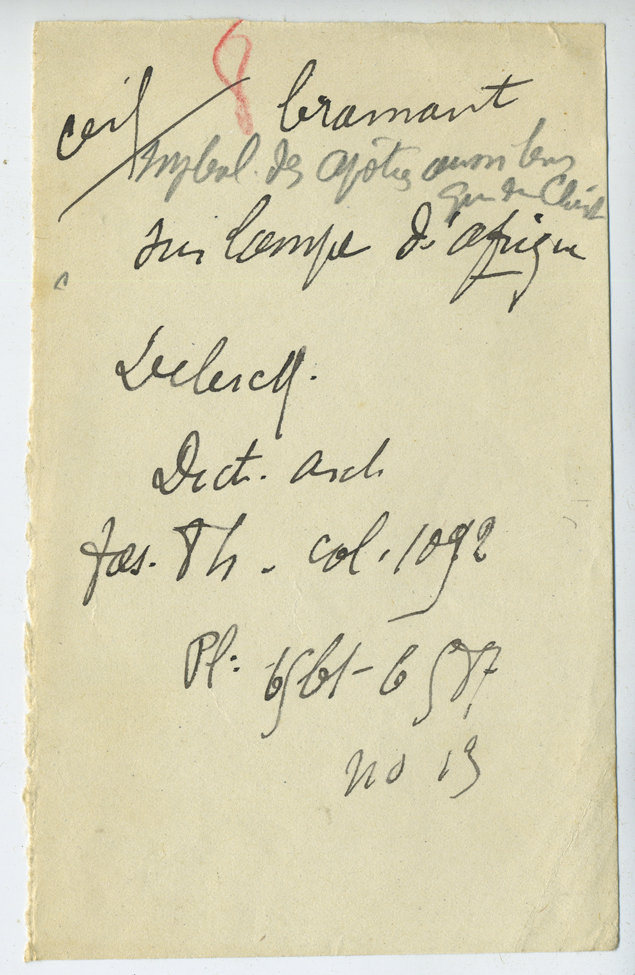 8
cerf / bramant
symbol. des apôtres aussi bien
que du Christ
sur lampe d'afrique
Leclercq.
Dict. arch
fas. Th. col. 1092
Pl:
no 13